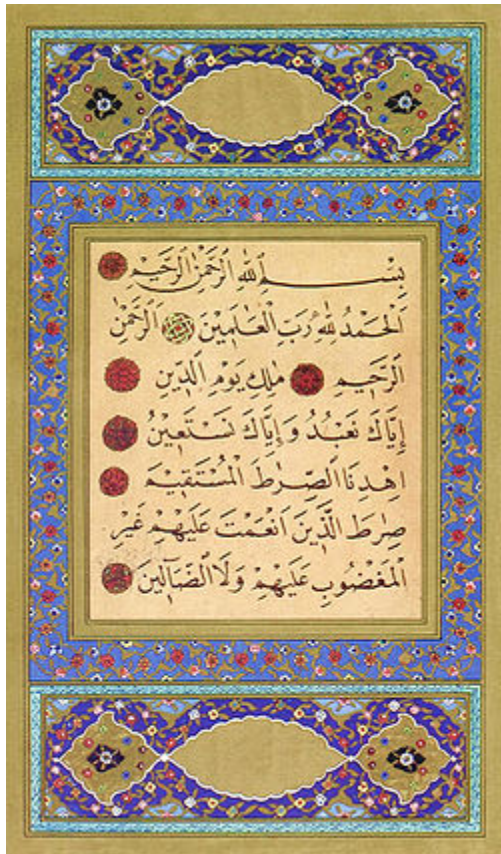 بِسْمِ اللهِ الرَّحْمٰنِ الرَّحٖيمِ
اَلْحَمْدُ لِلّٰهِ رَبِّ الْعَالَمٖينَ اَلرَّحْمٰنِ
الرَّحٖيمِ مٰلِكِ يَوْمِ الدّٖينِ
اِيَّاكَ نَعْبُدُ وَاِيَّاكَ نَسْتَعٖينُ
اِهْدِنَا الصِّرَاطَ الْمُسْتَقٖيمَ
صِرَاطَ الَّذٖينَ اَنْعَمْتَ عَلَيْهِمْ غَيْرِ
الْمَغْضُوبِ عَلَيْهِمْ وَلَا الضَّٓالّٖينَ